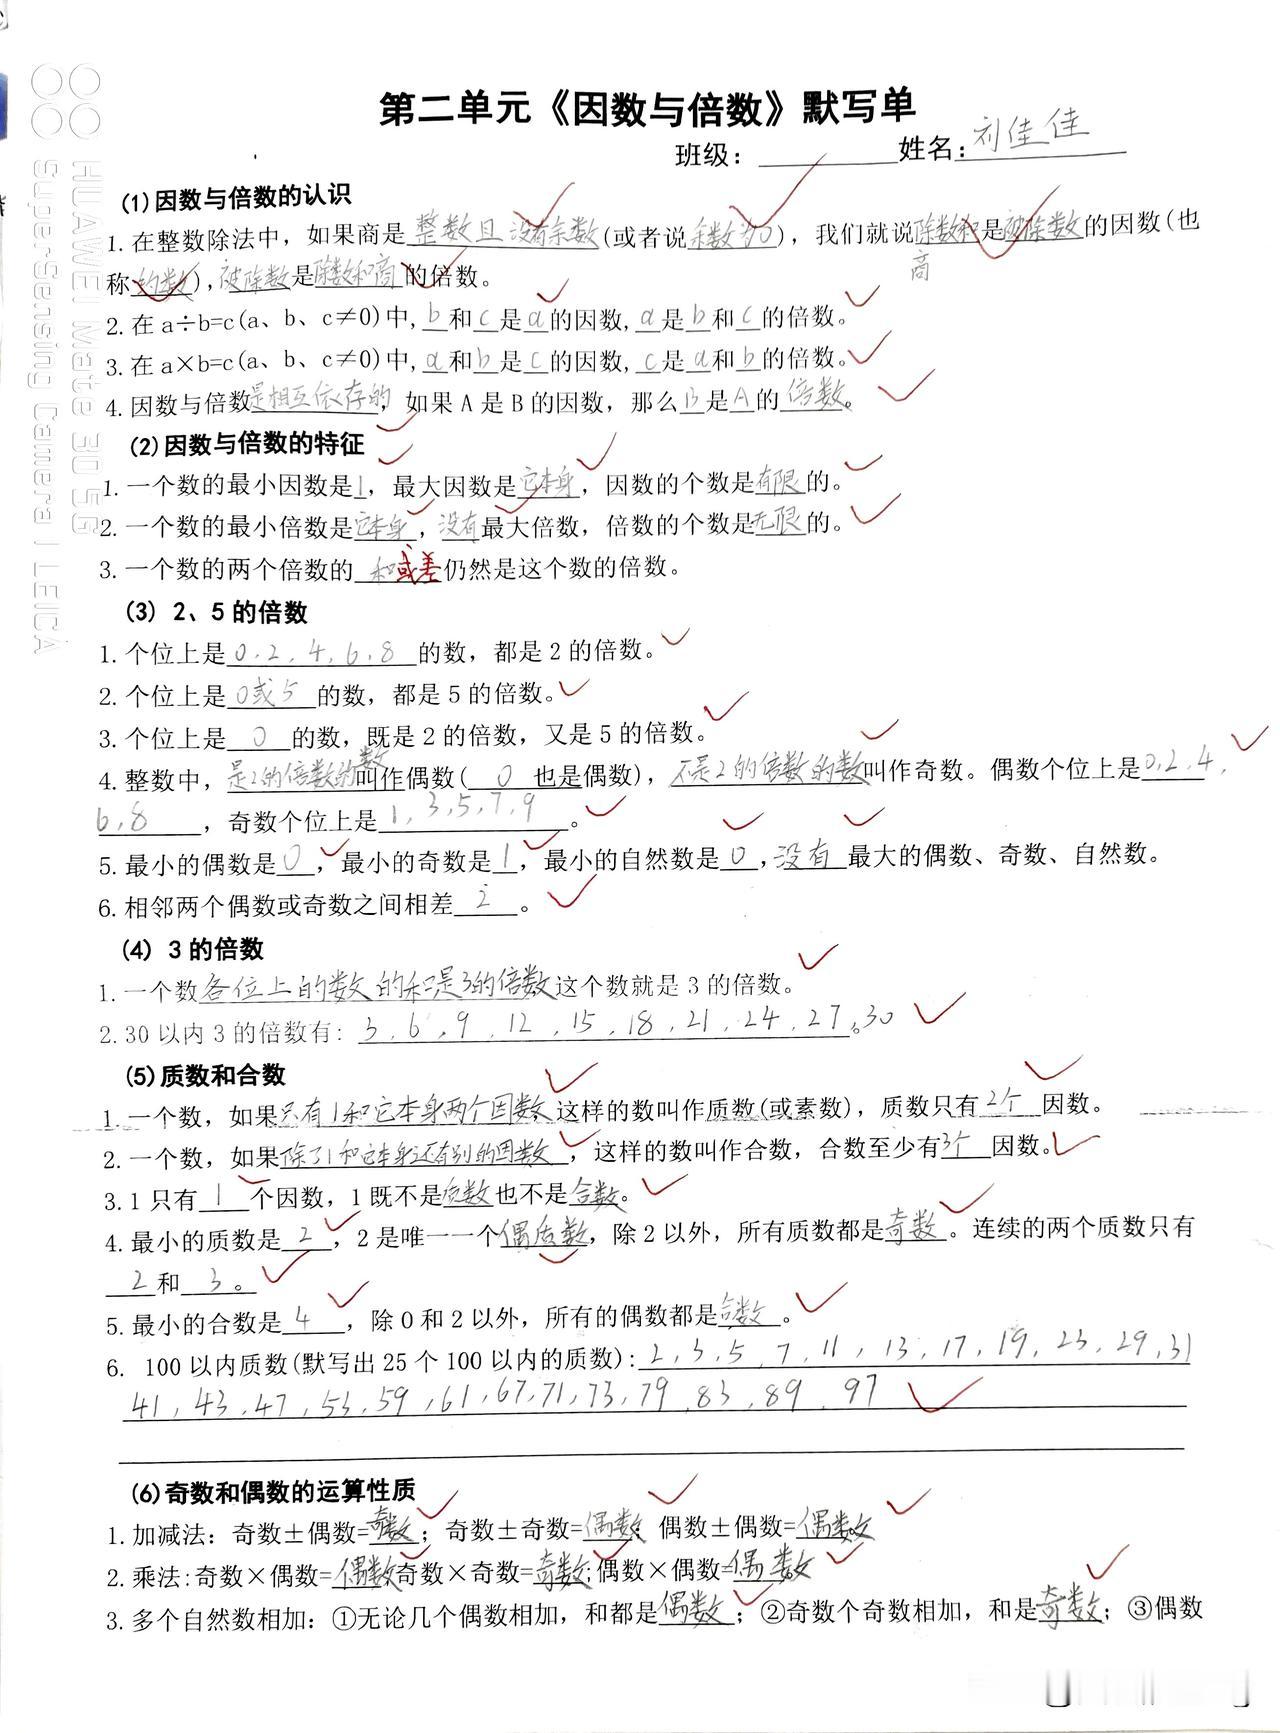 第二单元《因数与倍数》默写单
班级：________姓名：刘佳佳
(1)因数与倍数的认识
1.在整数除法中，如果商是整数且没有余数(或者说余数为0)，我们就说除数和是被除数的因数(也
商
称约数)，被除数是除数和商的倍数。
2.在a÷b=c(a、b、c≠0)中，b和c是a的因数，a是b和c的倍数。
3.在a×b=c(a、b、c≠0)中，a和b是c的因数，c是a和b的倍数。
4.因数与倍数是相互依存的，如果A是B的因数，那么B是A的倍数。
(2)因数与倍数的特征
1.一个数的最小因数是1，最大因数是它本身，因数的个数是有限的。
2.一个数的最小倍数是它本身，没有最大倍数，倍数的个数是无限的。
3.一个数的两个倍数的和或差仍然是这个数的倍数。
(3) 2、5的倍数
1.个位上是0.2.4.6.8的数，都是2的倍数。
2.个位上是0或5的数，都是5的倍数。
3.个位上是0的数，既是2的倍数，又是5的倍数。
4.整数中，是2的倍数的数叫作偶数(0也是偶数)，不是2的倍数的数叫作奇数。偶数个位上是0.2.4.
6.8，奇数个位上是1,3,5,7,9。
5.最小的偶数是0，最小的奇数是1，最小的自然数是0，没有最大的偶数、奇数、自然数。
6.相邻两个偶数或奇数之间相差2。
(4) 3的倍数
1.一个数各位上的数的和是3的倍数这个数就是3的倍数。
2.30以内3的倍数有：3.6.9.12.15.18.21.24.27。30
(5)质数和合数
1.一个数，如果只有1和它本身两个因数，这样的数叫作质数(或素数)，质数只有2个因数。
2.一个数，如果除了1和它本身还有别的因数，这样的数叫作合数，合数至少有3个因数。
3.1只有1个因数，1既不是质数也不是合数。
4.最小的质数是2，2是唯一一个偶质数，除2以外，所有质数都是奇数。连续的两个质数只有
2和3。
5.最小的合数是4，除0和2以外，所有的偶数都是合数。
6. 100以内质数(默写出25个100以内的质数)：2,3,5,7,11,13,17,19,23,29,31
41,43,47,53,59,61,67,71,73,79,83,89,97
(6)奇数和偶数的运算性质
1.加减法：奇数±偶数=奇数；奇数±奇数=偶数；偶数±偶数=偶数
2.乘法：奇数×偶数=偶数奇数×奇数=奇数；偶数×偶数=偶数
3.多个自然数相加：①无论几个偶数相加，和都是偶数；②奇数个奇数相加，和是奇数；③偶数
HUAWEI Mate 30 5G
Super-Sensing Camera | LEICA